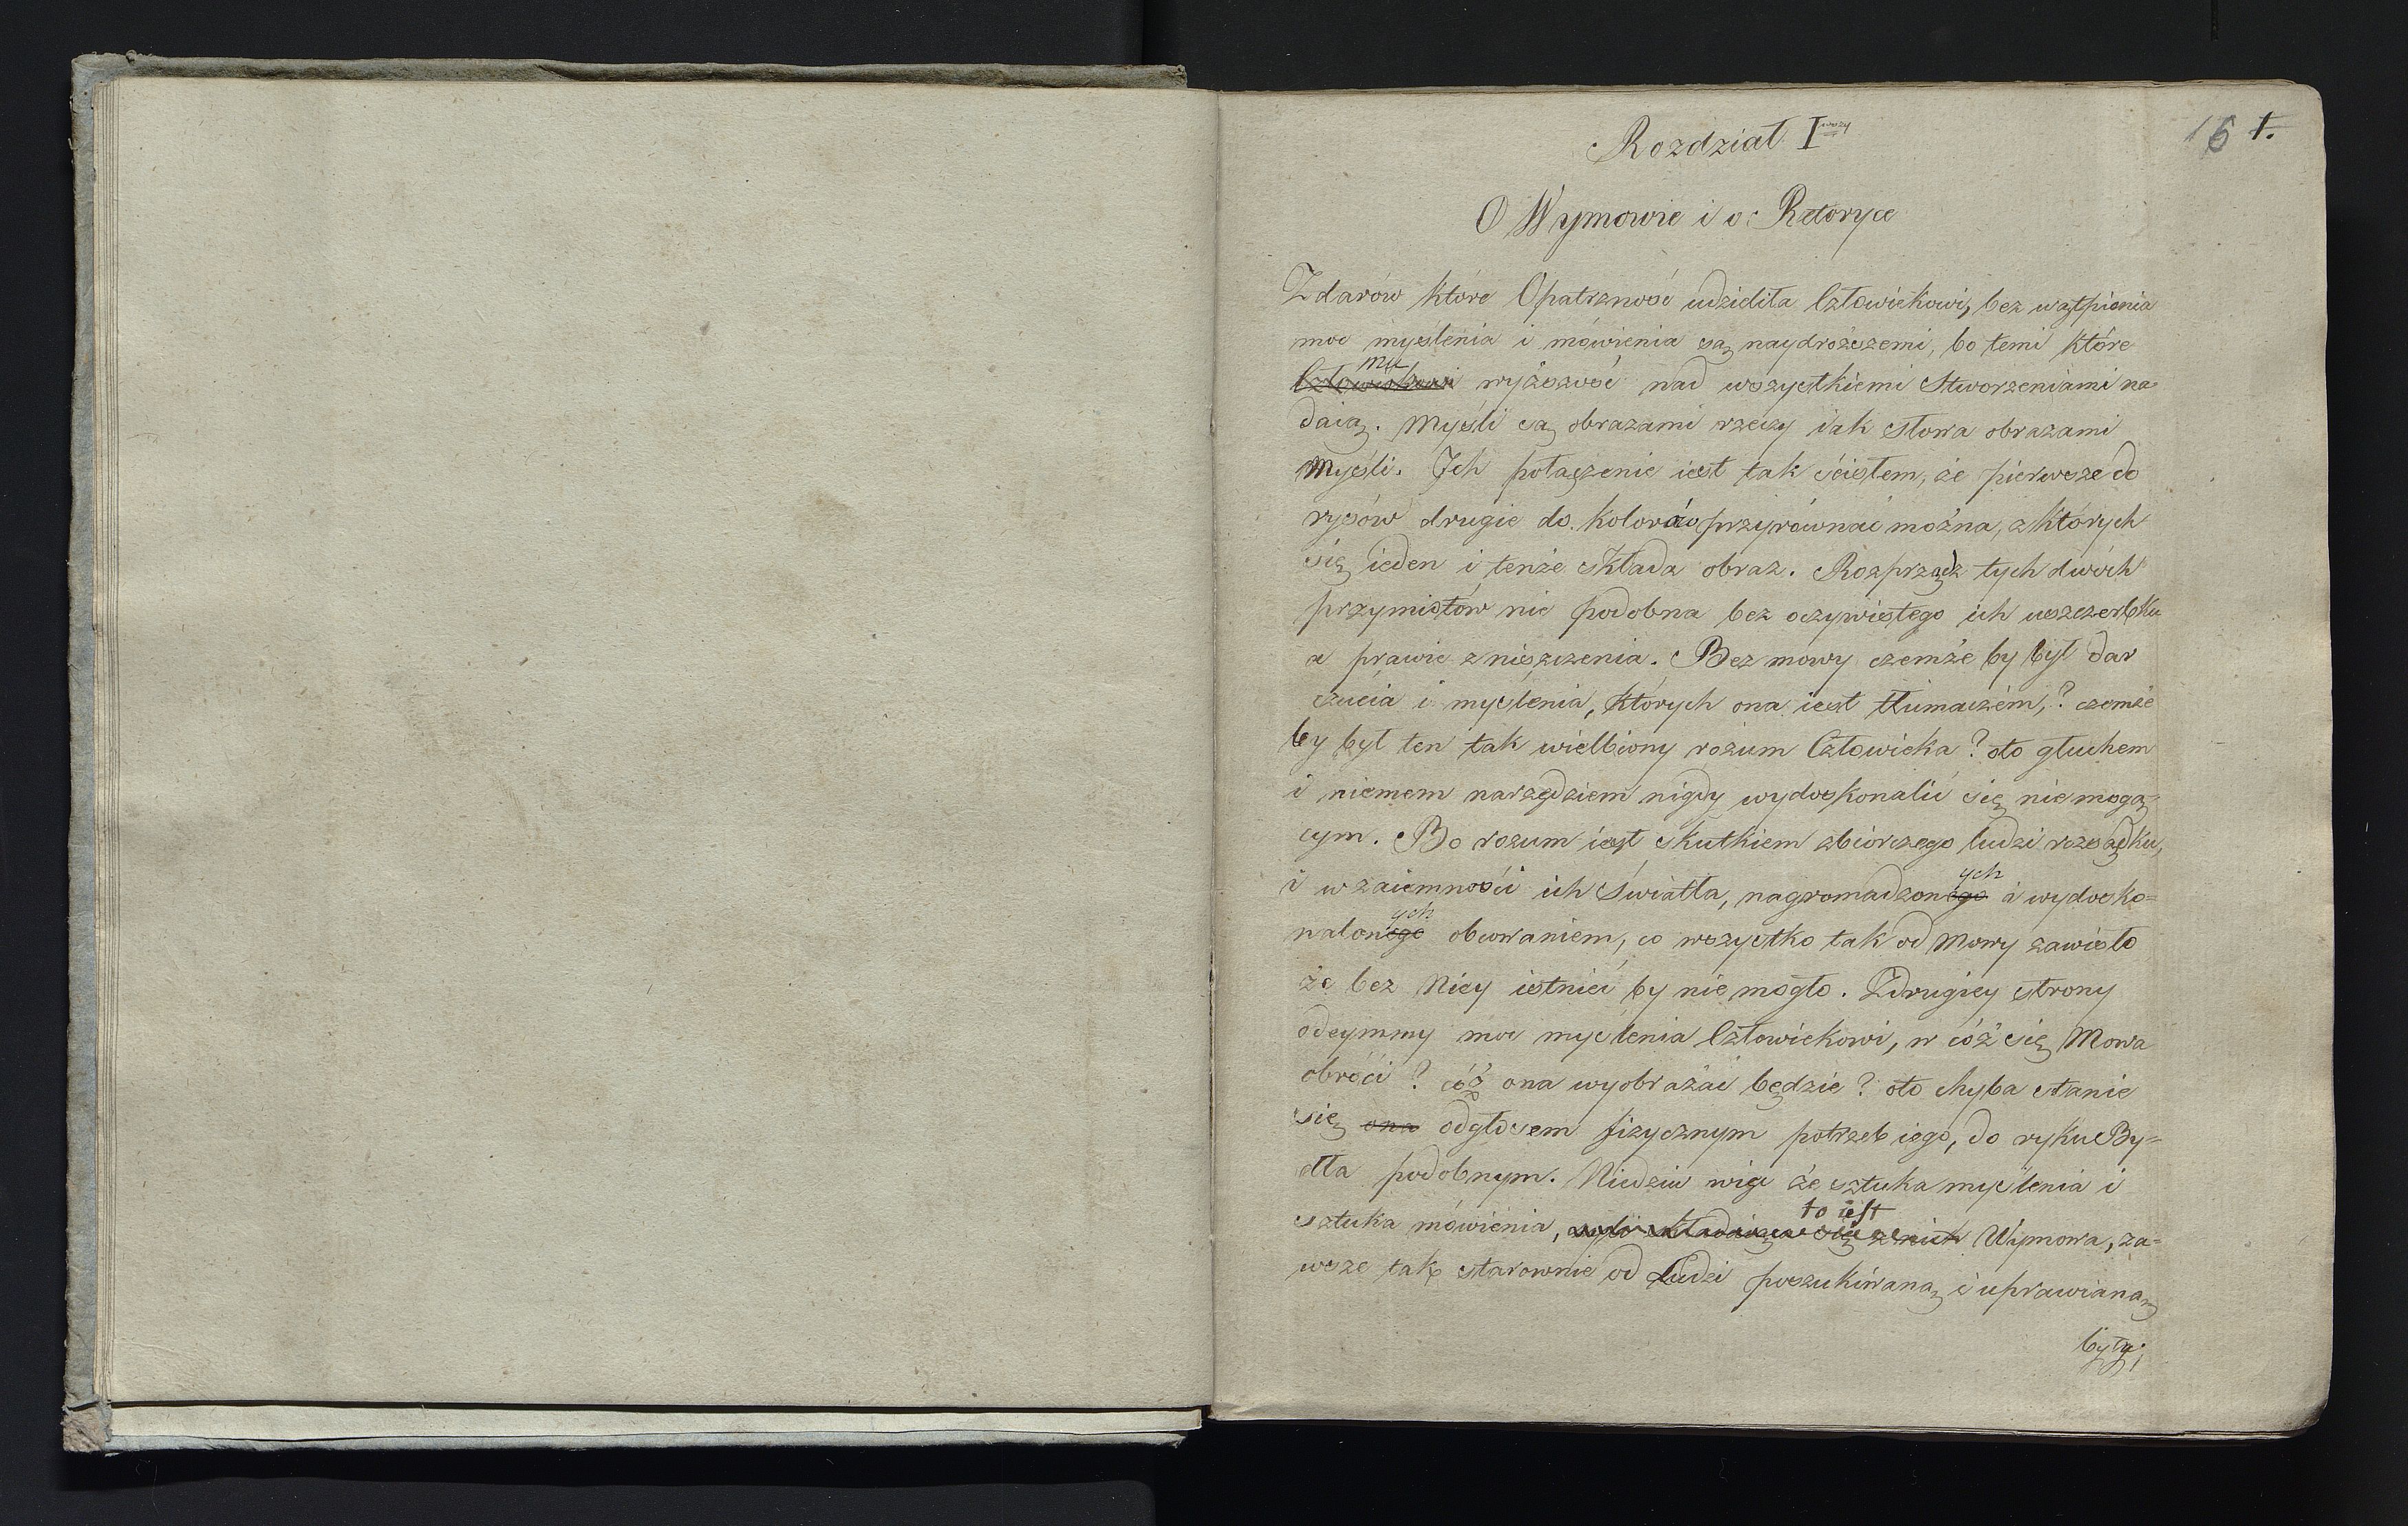 16 1.
Rozdział Iwszy
O Wymowie i o Retoryce
Z darów które Opatrzność udzieliła Człowiekowi, bez wątpienia
moc myślenia i mówienia są naydroższemi, bo temi które
mu
Człowiekowi wyższość nad wszystkiemi Stworzeniami na
daią. Myśli są obrazami rzeczy iak słowa obrazami
Myśli. Ich połączenie iest tak ścisłem, że pierwsze do
rysów drugie do kolorów przyrównać można, z których
się ieden i tenże składa obraz. Rozprządz tych dwóch
przymiotów nie podobna bez oczywistego ich uszczerbku
a prawie zniszczenia. Bez mowy czemże by był dar
czucia i myślenia, których ona iest tłumaczem,? czemże
by był ten tak wielbiony rozum Człowieka? oto głuchem
i niemem narzędziem nigdy wydoskonalić się nie mogą-
cym. Bo rozum iest skutkiem zbiorczego ludzi rozsądku,
ych
i wzaiemności ich Światła, nagromadzonego i wydosko=
ych
nalonego obcowaniem, co wszystko tak od Mowy zawisło
że bez Niey istnieć by nie mogło. Z drugiey strony
odeymmy moc myślenia Człowiekowi, w cóż się Mowa
obróci? cóż ona wyobrażać będzie? oto chyba stanie
się ona odgłosem fizycznym potrzeb iego, do ryku By=
dła podobnym. Niedziw więc że sztuka myślenia i
to iest
sztuka mówienia, składaiąca się z nich Wymowa, za=
wsze tak starownie od Ludzi poszukiwaną i uprawianą
były;